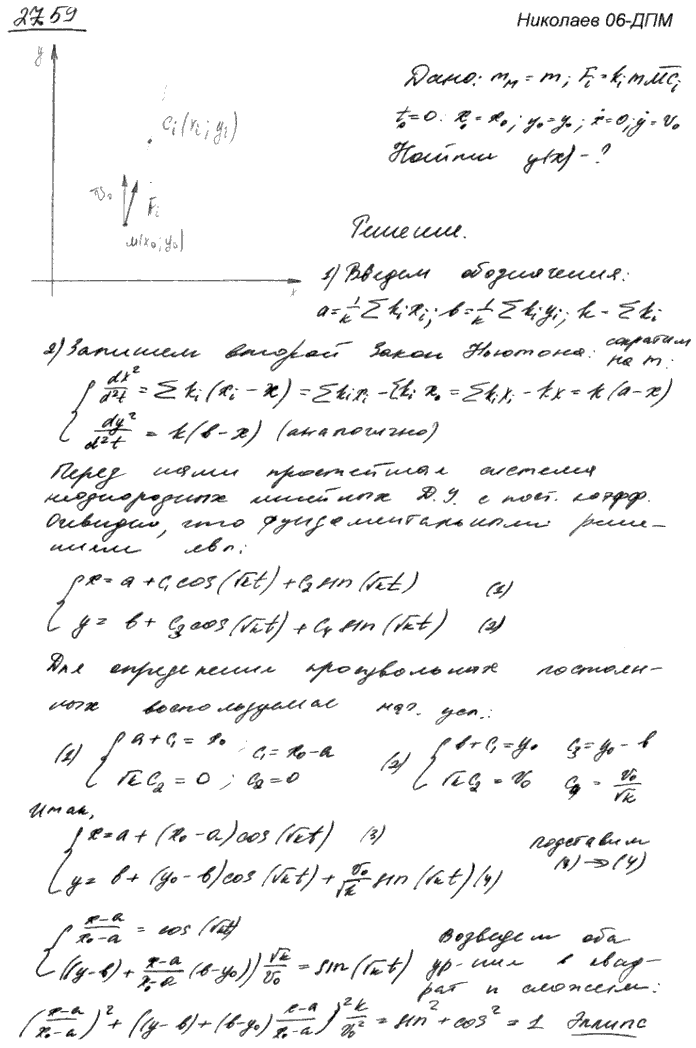 27.59
Николаев 06-ДПМ
y
Cᵢ(xᵢ; yᵢ)
v₀
Fᵢ
M(x₀; y₀)
x
Дано: m_м = m; Fᵢ = kᵢ m MCᵢ
t₀=0: x₀ = x₀; y₀ = y₀; ẋ=0; ẏ = v₀
Найти y(x) - ?
Решение.
1) Введем обозначения:
a = 1/k Σ kᵢxᵢ; b = 1/k Σ kᵢyᵢ; k - Σ kᵢ
2) Запишем второй закон Ньютона: сократим на m:
{ dx²/d²t = Σ kᵢ(xᵢ - x) = Σkᵢxᵢ - Σkᵢ x₀ = Σkᵢxᵢ - kx = k(a-x)
dy²/d²t = k(b-x) (аналогично)
Перед нами простейшая система
неоднородных линейных Д.У. с пост. коэфф.
Очевидно, что фундаментальными реше-
нием явл:
{ x = a + c₁cos(√kt) + c₂sin(√kt) (1)
y = b + c₃cos(√kt) + c₄sin(√kt) (2)
Для определения произвольных постоян-
ных воспользуемся нач. усл.:
(1) { a + c₁ = x₀ ; c₁ = x₀ - a
√k c₂ = 0 ; c₂ = 0
(2) { b + c₁ = y₀ c₃ = y₀ - b
√k c₂ = v₀ c₄ = v₀/√k
Итак,
{ x = a + (x₀ - a)cos(√kt) (3)
y = b + (y₀ - b)cos(√kt) + v₀/√k sin(√kt) (4)
подставим
(3) → (4)
{ (x-a)/(x₀-a) = cos(√kt)
((y-b) + (x-a)/(x₀-a) (b-y₀)) √k/v₀ = sin(√kt)
Возведем оба
ур-ния в квад-
рат и сложим:
((x-a)/(x₀-a))² + ((y-b) + (b-y₀) (x-a)/(x₀-a))² k/v₀² = sin² + cos² = 1 Эллипс